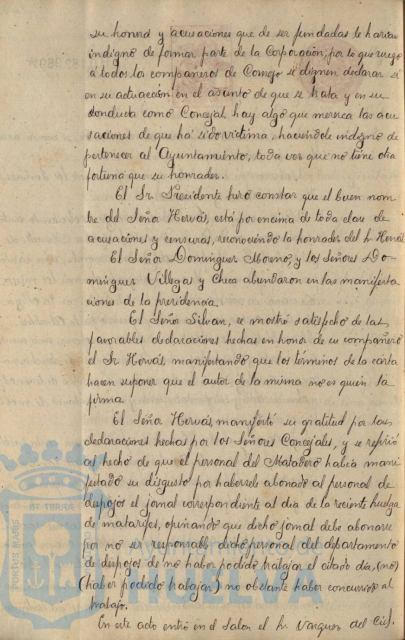 su honord y acusaciones que de ser fundadas le harian
indigno de formar parte de la Corporación, por lo que ruego
á todos los compañeros de Consejo se dignen declarar si
en su actuación en el asunto de que se trata y en su
conducta como Concejal hay algo que merezca las acu-
saciones de que há sido víctima, haciendole indigno de
pertenecer al Ayuntamiento, toda vez que no tiene otra
fortuna que su honradez.
El Sr. Presidente hizo constar que el buen nom-
bre del Señor Hervás, está por encima de toda clase de
acusaciones y censuras, reconociendo la honradez del Sr. Hervás
El Señor Dominguez Moreno, y los Señores Do-
minguez Villegas y Checa abundaron en las manifesta-
ciones de la presidencia.
El Señor Silvan, se mostró satisfecho de las
favorables declaraciones hechas en honor de su compañero
el Sr. Hervás, manifestando que los términos de la carta
hacen suponer que el autor de la misma no es quien la
firma.
El Señor Hervás, manifestó su gratitud por las
declaraciones hechas por los Señores Concejales, y se refirió
al hecho de que el personal del Matadero habia mani-
festado su disgusto por habersele abonado al personal de
despojos el jornal correspondiente al dia de la reciente huelga
de matarifes, opinando que dicho jornal debe abonarse
por no ser responsable dicho personal del departamento
de despojos de no haber podido trabajar el citado dia, (no)
(haber podido trabajar) no obstante haber concurrido al
trabajo.
En este acto entró en el Salon el Sr. Vazquez del Cid.
PORTUS MARIS
ET TERRE
Ayuntamiento de
HUELVA